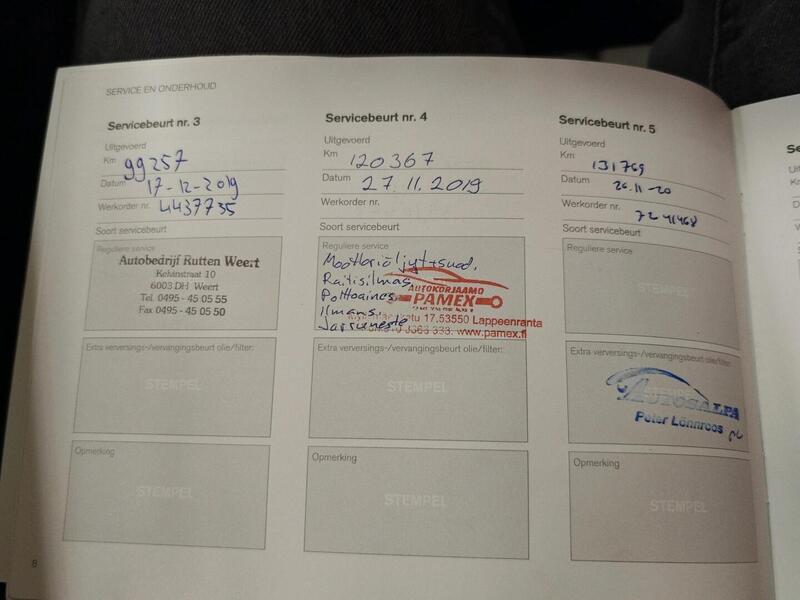 SERVICE EN ONDERHOUD
Servicebeurt nr. 3
Uitgevoerd
Km 99257
Datum 17-12-2019
Werkorder nr. 4437735
Soort servicebeurt
Reguliere service
Autobedrijf Rutten Weert
Kelvinstraat 10
6003 DH Weert
Tel. 0495 - 45 05 55
Fax 0495 - 45 05 50
Extra verversings-/vervangingsbeurt olie/filter:
STEMPEL
Opmerking
STEMPEL
Servicebeurt nr. 4
Uitgevoerd
Km 120367
Datum 27.11.2019
Werkorder nr.
Soort servicebeurt
Reguliere service
Moottoriöljyt+suod.
Raitisilmas.
Polttoaines.
Ilmans.
Jarruneste
AUTOKORJAAMO
PAMEX
17, 53550 Lappeenranta
333. www.pamex.fi
Extra verversings-/vervangingsbeurt olie/filter:
STEMPEL
Opmerking
STEMPEL
Servicebeurt nr. 5
Uitgevoerd
Km 131769
Datum 26.11-20
Werkorder nr.
Soort servicebeurt
Reguliere service
STEMPEL
Extra verversings-/vervangingsbeurt olie/filter:
AUTOSALPA
Peter Lönnroos
Opmerking
STEMPEL
8